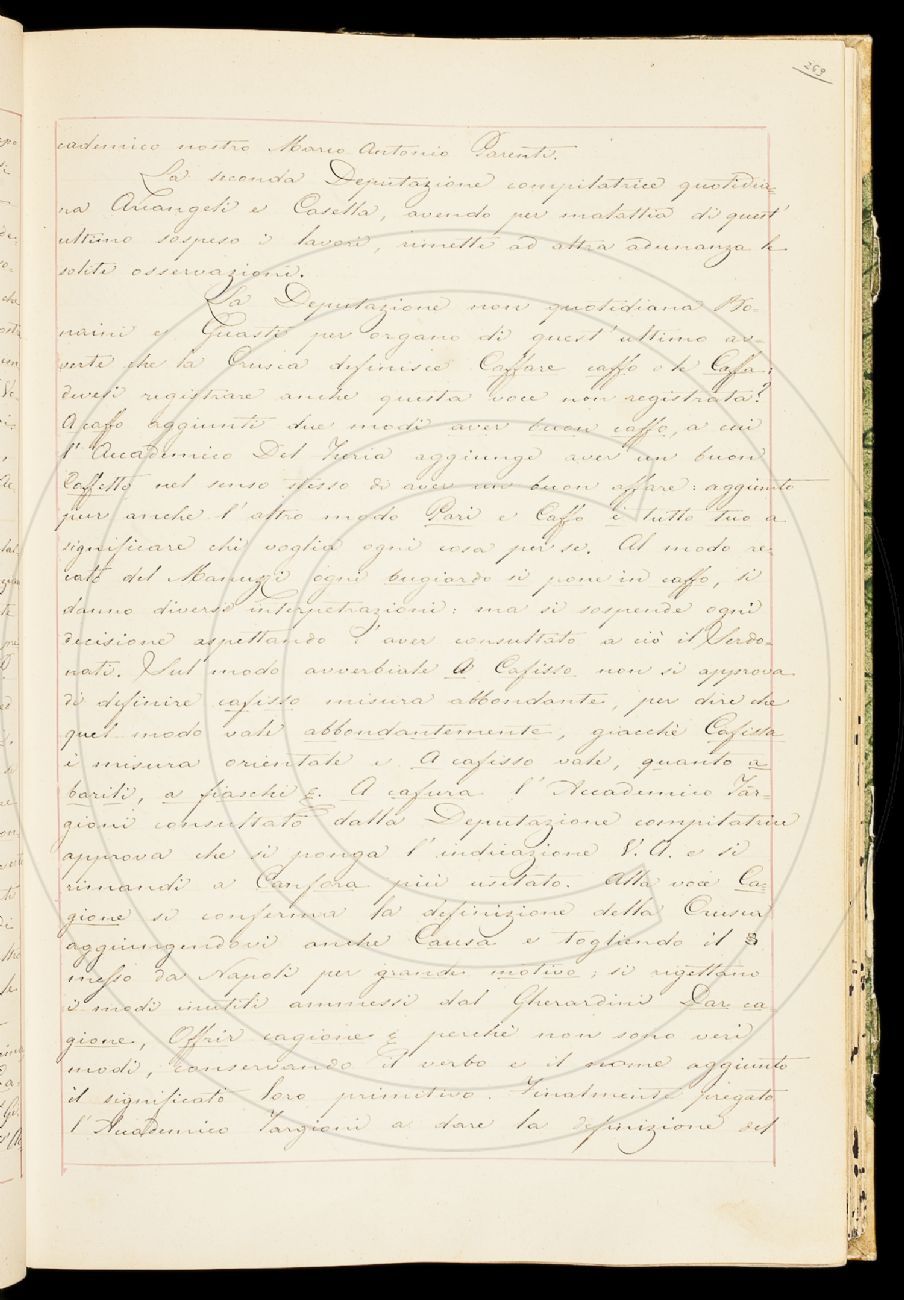 269
cademico nostro Marco Antonio Parenti.
La seconda Deputazione compilatrice quotidia=
na Arcangeli e Casella, avendo per malattia di quest'
ultimo sospeso i lavori, rimette ad altra adunanza le
solite osservazioni.
La Deputazione non quotidiana Bo=
naini e Guasti per organo di quest'ultimo av=
verte che la Crusca definisce Caffare caffo o le Caffa;
devesi registrare anche questa voce non registrata?
A caffo aggiunti due modi aver buon caffo, a cui
l'Accademico Del Furia aggiunge aver un buon
Caffetto nel senso stesso di aver un buon affare: aggiunto
pur anche l'altro modo Pari e Caffo è tutto tuo a
significare chi voglia ogni cosa per se. Al modo re=
cato del Manuzzi ogni bugiardo si pone in caffo, si
danno diverse interpetrazioni: ma si sospende ogni
decisione aspettando l'aver consultato a ciò il Serdo=
nati. Sul modo avverbiale A Cafisso non si approva
di definire cafisso misura abbondante, per dire che
quel modo vale abbondantemente, giacchè Cafissa
è misura orientale e A cafisso vale, quanto a
barili, a fiaschi &. A cafura l'Accademico Tar=
gioni consultato dalla Deputazione compilatrice
approva che si ponga l'indicazione V. A. e si
rimandi a Canfora più usitato. Alla voce Ca=
gione si conferma la definizione della Crusca
aggiungendovi anche Causa e togliendo il
messo da Napoli per grande motivo; si rigettano
i modi inutili ammessi dal Gherardini Dar ca=
gione, Offrir cagione & perchè non sono veri
modi, conservando il verbo e il nome aggiunto
il significato loro primitivo. Finalmente pregato
l'Accademico Targioni a dare la definizione del